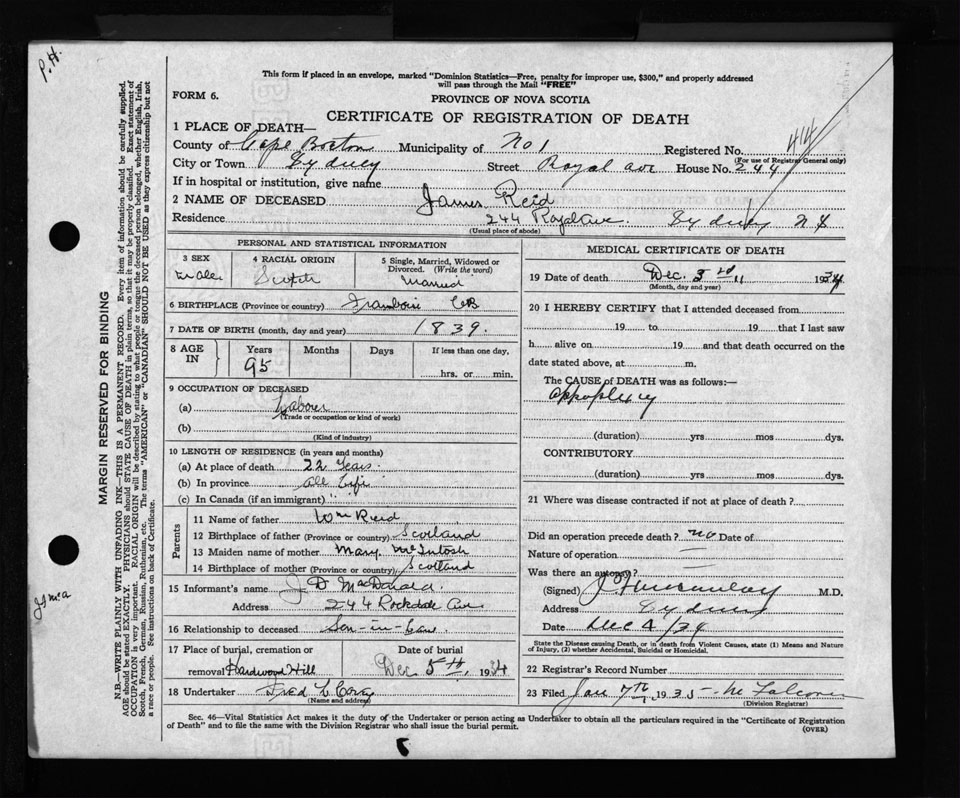 P.H.
This form if placed in an envelope, marked "Dominion Statistics—Free, penalty for improper use, $300," and properly addressed
will pass through the Mail "FREE"
FORM 6.
PROVINCE OF NOVA SCOTIA
CERTIFICATE OF REGISTRATION OF DEATH
1 PLACE OF DEATH—
County of Cape Breton Municipality of No 1 Registered No.
(For use of Registrar General only)
City or Town Sydney Street Royal ave House No. 244
If in hospital or institution, give name
2 NAME OF DECEASED James Reid
Residence 244 Royal Ave. Sydney N S
(Usual place of abode)
PERSONAL AND STATISTICAL INFORMATION
3 SEX
Male
4 RACIAL ORIGIN
Scotch
5 Single, Married, Widowed or
Divorced. (Write the word)
Married
6 BIRTHPLACE (Province or country) Framboise CB
7 DATE OF BIRTH (month, day and year) 1839.
8 AGE IN
Years Months Days If less than one day,
95 hrs. or min.
9 OCCUPATION OF DECEASED
(a) Labour
(Trade or occupation or kind of work)
(b)
(Kind of industry)
10 LENGTH OF RESIDENCE (in years and months)
(a) At place of death 22 Years.
(b) In province all Life
(c) In Canada (if an immigrant) " "
Parents
11 Name of father Wm Reid
12 Birthplace of father (Province or country) Scotland
13 Maiden name of mother Mary McIntosh
14 Birthplace of mother (Province or country) Scotland
15 Informant's name J D MacDonald
Address 244 Rockdale Ave
16 Relationship to deceased Son-in-Law.
17 Place of burial, cremation or Date of burial
removal Hardwood Hill Dec 5th, 1934
18 Undertaker Fred L Corey
(Name and address)
MEDICAL CERTIFICATE OF DEATH
19 Date of death Dec. 3rd 1934
(Month, day and year)
20 I HEREBY CERTIFY that I attended deceased from
19 to 19 that I last saw
h alive on 19 and that death occurred on the
date stated above, at m.
The CAUSE of DEATH was as follows:—
Appoplexy
(duration) yrs mos dys.
CONTRIBUTORY
(duration) yrs mos dys.
21 Where was disease contracted if not at place of death?
Did an operation precede death? no Date of
Nature of operation —
Was there an autopsy? —
(Signed) M.D.
Address Sydney
Date Dec 4/34
State the Disease causing Death, or in death from Violent Causes, state (1) Means and Nature
of Injury, (2) whether Accidental, Suicidal or Homicidal.
22 Registrar's Record Number
23 Filed Jan 7th 1935
(Division Registrar)
Sec. 46—Vital Statistics Act makes it the duty of the Undertaker or person acting as Undertaker to obtain all the particulars required in the "Certificate of Registration
of Death" and to file the same with the Division Registrar who shall issue the burial permit.
(OVER)
MARGIN RESERVED FOR BINDING
N.B.—WRITE PLAINLY WITH UNFADING INK—THIS IS A PERMANENT RECORD. Every item of information should be carefully supplied.
AGE should be stated EXACTLY. PHYSICIANS should STATE CAUSE OF DEATH in plain terms, so that it may be properly classified. Exact statement of
OCCUPATION is very important. RACIAL ORIGIN will be described by stating to what people or tongue the deceased person belonged, whether English, Irish,
Scotch, French, German, Russian, Ruthenian, etc. The terms "AMERICAN" or "CANADIAN" SHOULD NOT BE USED as they express citizenship but not
a race or people. See instructions on back of Certificate.